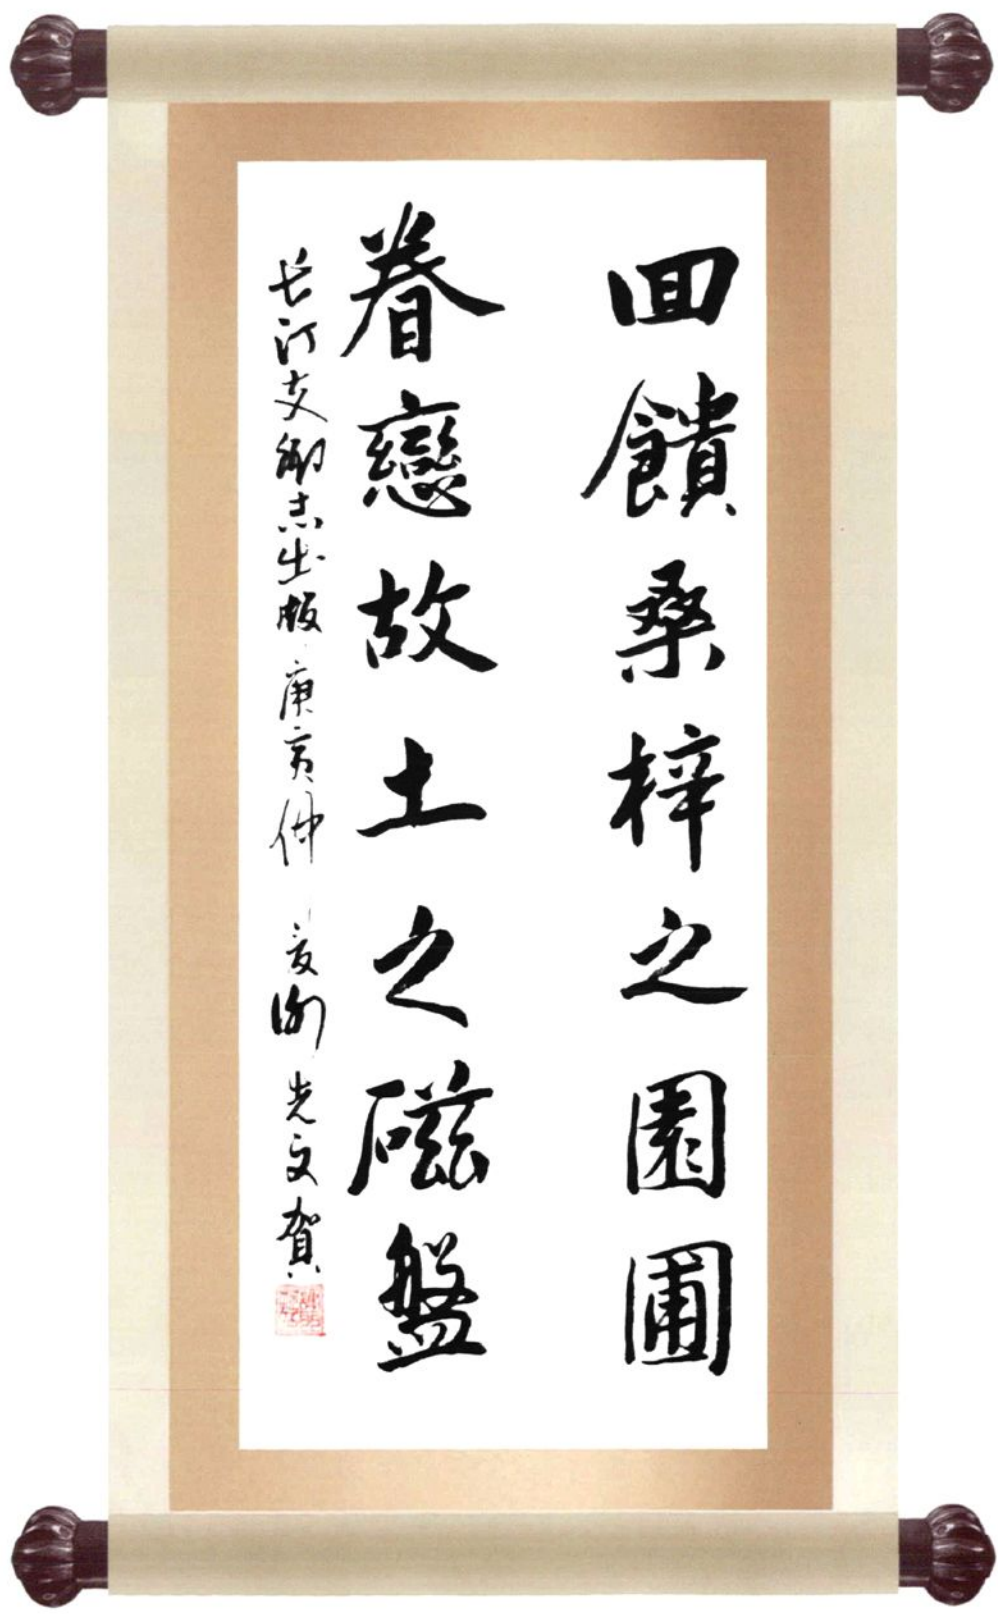 回饋桑梓之園圃
眷戀故土之磁盤
长汀志出版庚寅仲夏光文賀